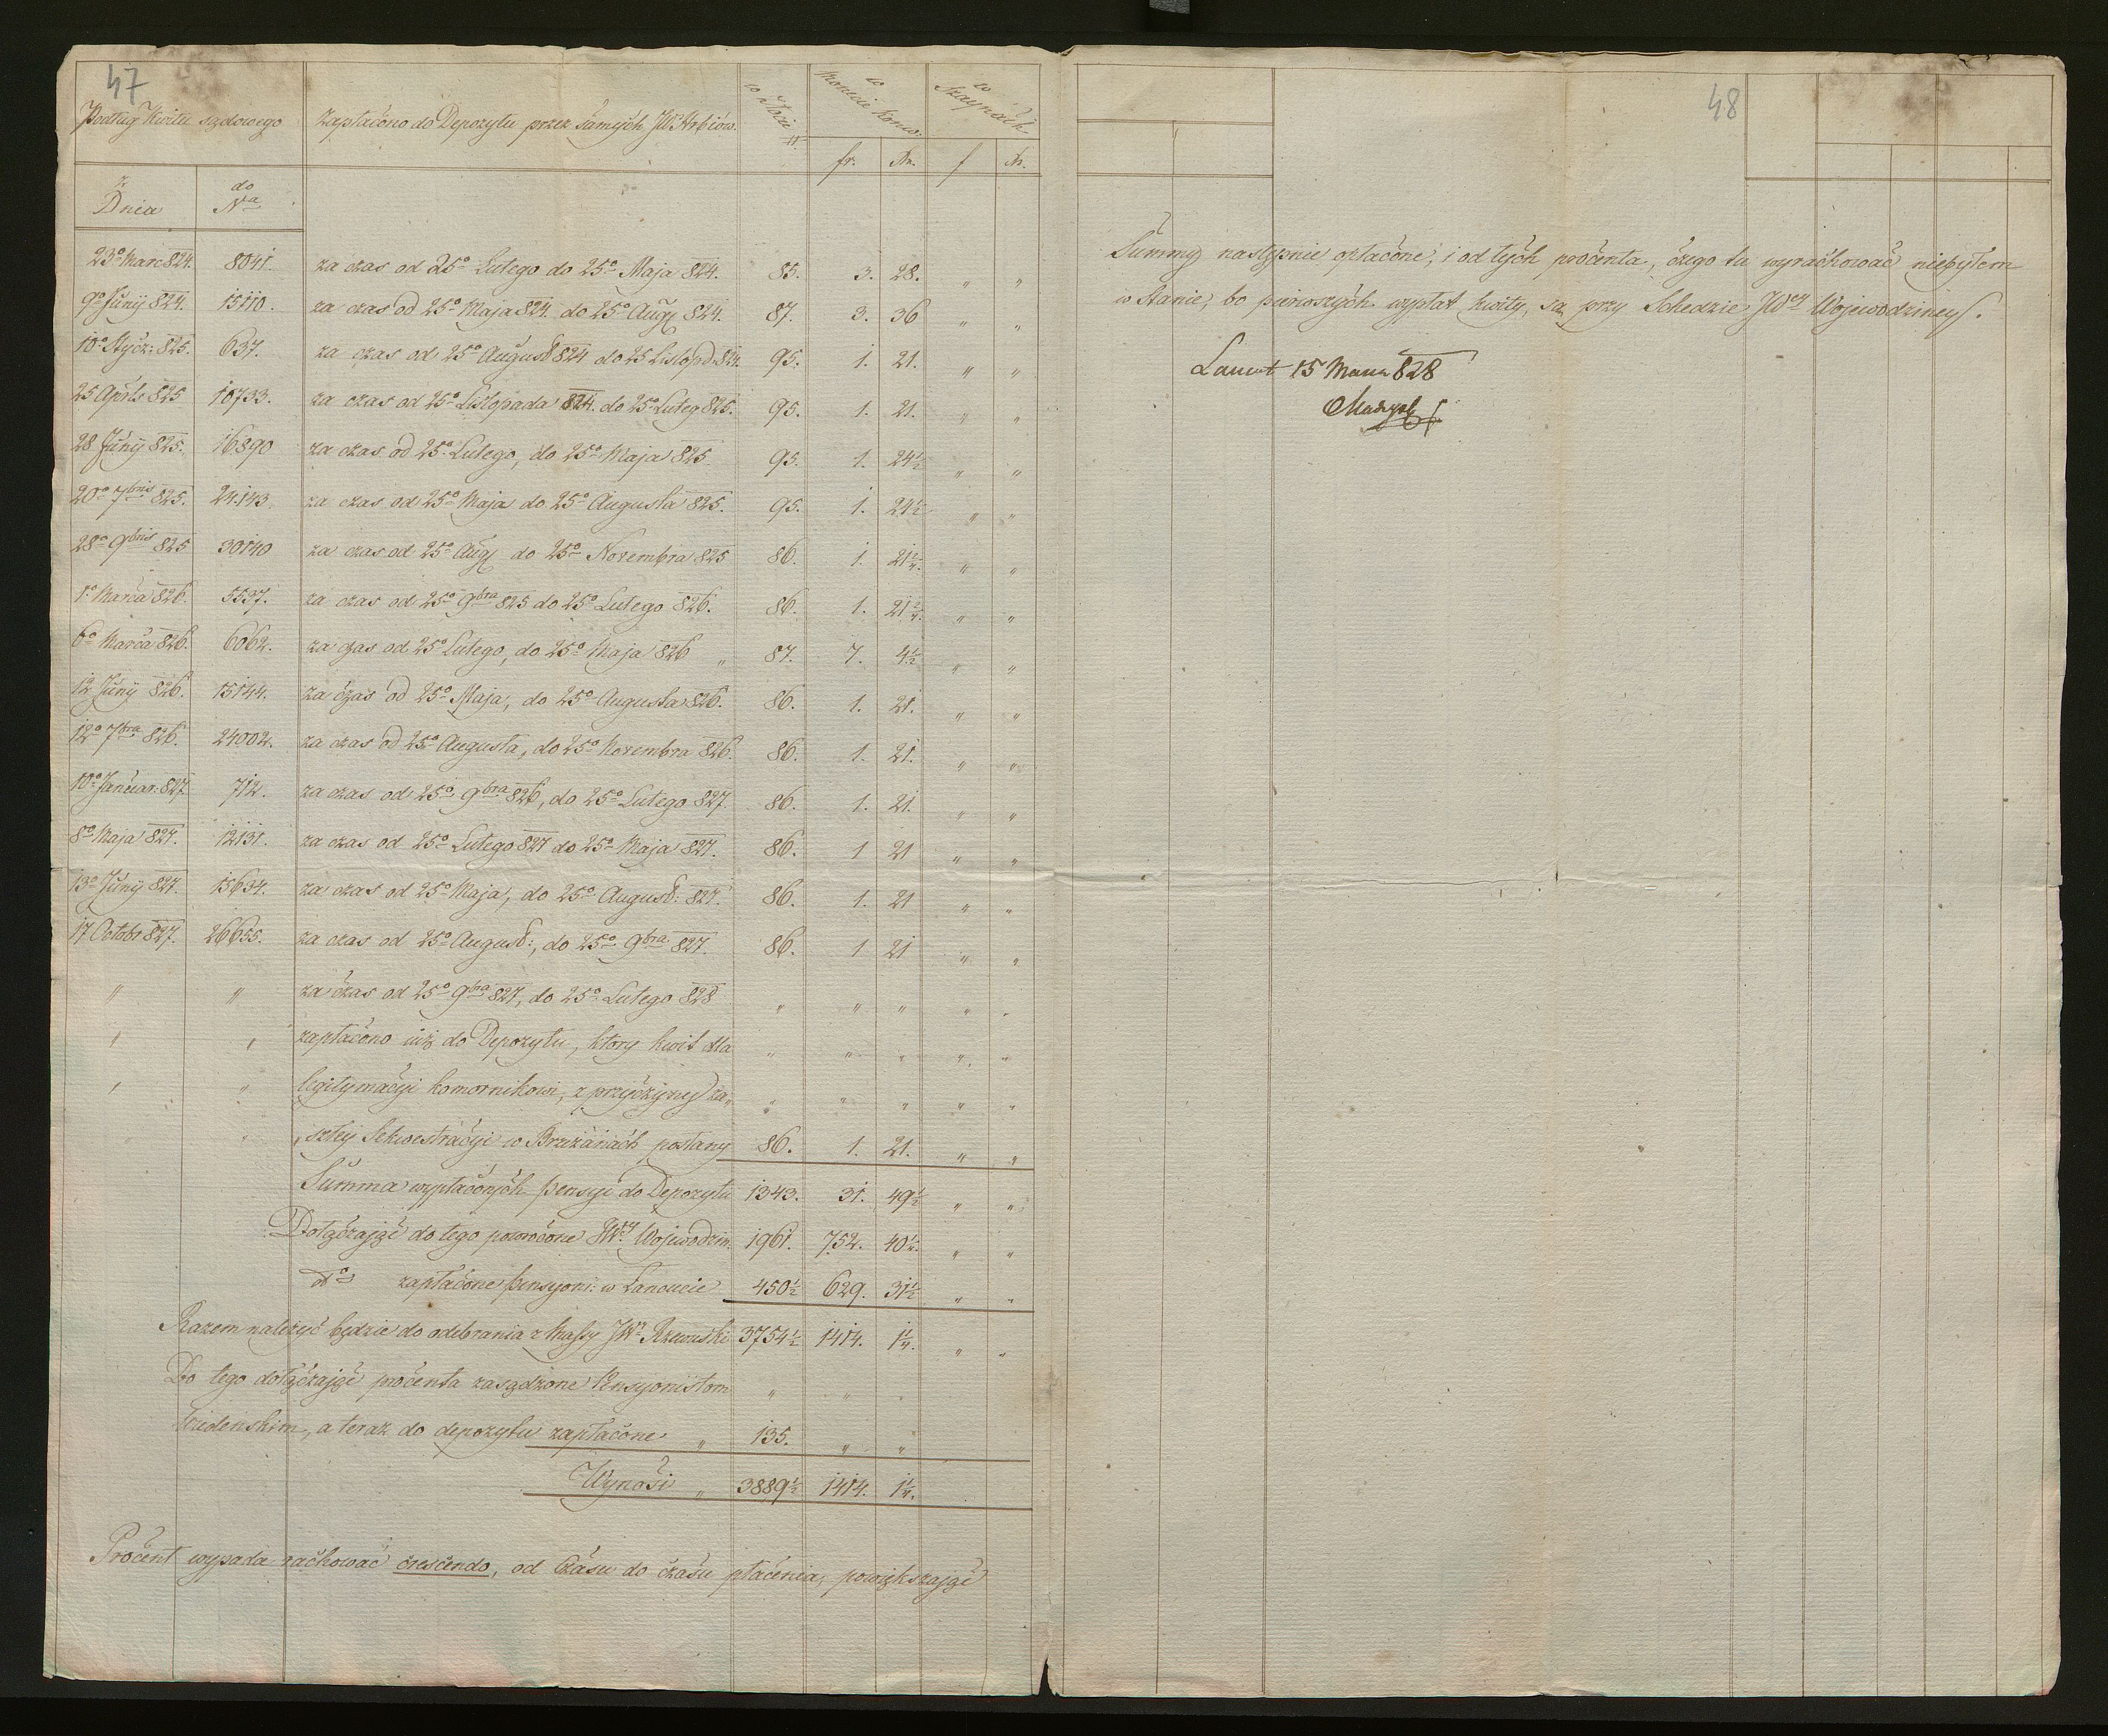 47
Podług Kwitu sądowego zapłacono do Depozytu przez samych JW. Hrbiów. w złocie # w monecie konw: w szaynach
fr. Xr. f Xr.
z Dnia do Na
23o Marc 824. 8041. za czas od 25o Lutego do 25o Maja 824. 85. 3. 28. " "
9o Junij 824. 15110. za czas od 25o Maja 824. do 25o Aug 824. 87. 3. 36 " "
10o Stycz: 825. 637. za czas od 25o August 824 do 25 Listopd: 824. 95. 1. 21. " "
25 Aprils 825 10733. za czas od 25o Listopada 824. do 25o Luteg 825. 95. 1. 21. " "
28 Junij 825. 16890 za czas od 25o Lutego, do 25o Maja 825. 95. 1. 24½ " "
20o 7bris 825. 24143. za czas od 25o Maja do 25o Augusta 825. 95. 1. 24½ " "
28o 9bris 825 30140 za czas od 25o Aug do 25o Novembra 825 86. 1. 21 2/4. " "
1o Marca 826. 5537. za czas od 25o 9bra 825 do 25o Lutego 826. 86. 1. 21 2/4. " "
6o Marca 826. 6062. za czas od 25o Lutego, do 25o Maja 826 " 87. 7. 4½ " "
12 Junij 826. 15144. za czas od 25o Maja, do 25o Augusta 826. 86. 1. 21. " "
12o 7bra 826. 24002. za czas od 25o Augusta, do 25o Novembra 826. 86. 1. 21. " "
10o Januar: 827 712. za czas od 25o 9bra 826, do 25o Lutego 827. 86. 1. 21. " "
8o Maja 827. 12131. za czas od 25o Lutego 827 do 25o Maja 827. 86. 1 21 " "
13o Junij 827. 15634. za czas od 25o Maja, do 25o August: 827. 86. 1. 21 " "
17 Octobr 827. 26655. za czas od 25o August:, do 25o 9bra 827. 86. 1 21 " "
" " za czas od 25o 9bra 827, do 25o Lutego 828 " " " " "
" " zapłacono iuż do Depozytu, ktory kwit dla " " " " "
" " legitymacyi komornikowi, z przyczyny za, " " " " "
" " szłey Sekwestracyi w Brzeżanach posłany 86. 1. 21. " "
Summa wypłaconych pensyi do Depozytu 1343. 31. 49½ " "
Dołączając do tego powrócone JWey Wojewodzin. 1961. 752. 40¼. " "
dto zapłacone pensyoni: w Łancucie 450½ 629. 31½ " "
Razem należyć będzie do odebrania z Massy JWr Rzewuski 3754½ 1414. 1¼. " "
Do tego dołączając procenta zasądzone Pensyonistom " "
Wiedeńskim, a teraz do depozytu zapłacone " 135. " "
Wynosi " 3889½ 1414. 1¼.
Procent wypada rachować crescendo, od Czasu do czasu płacenia, powiększając
48
Summy następnie opłacone, i od tych procenta, czego tu wyrachować niebyłem
w Stanie, bo pierwszych wypłat kwity, są przy Schedzie JWey Wojewodziney.
Lancut 15 Marca 828